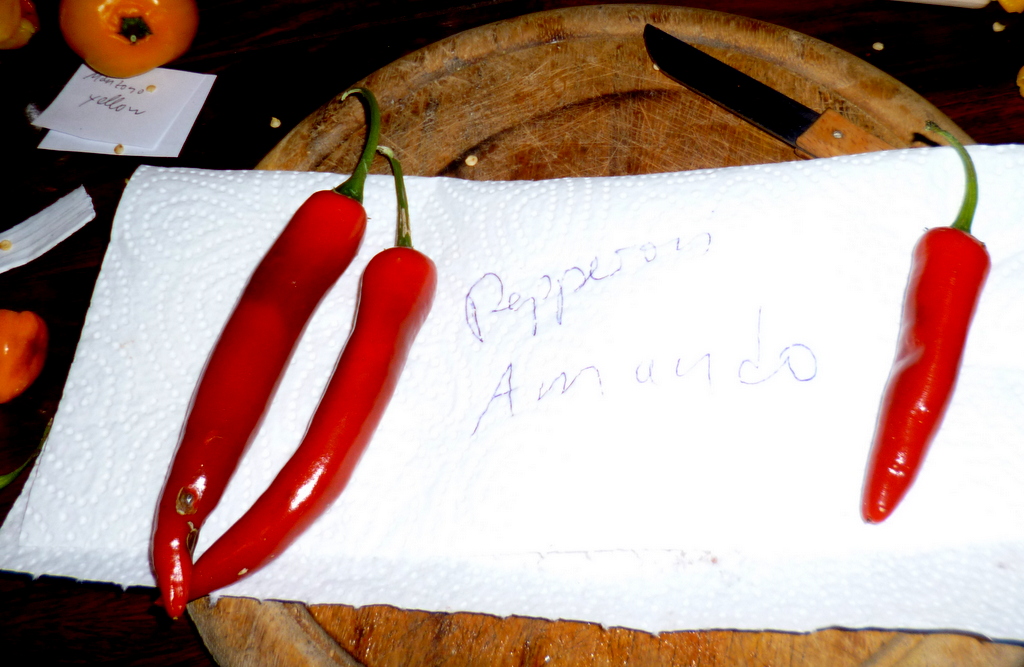 Mantono
yellow
Pepperoni
Amando